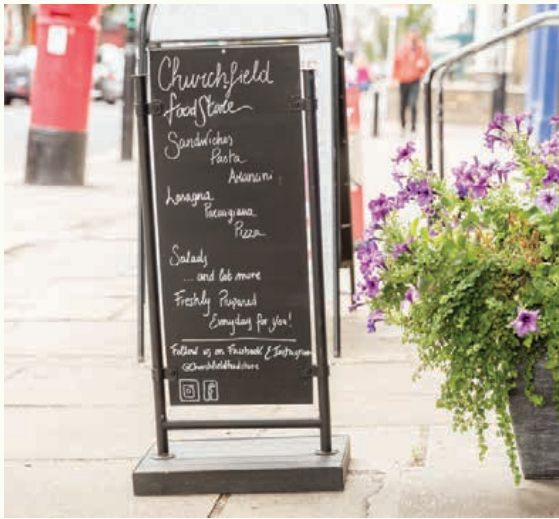 Churchfield
food Store
Sandwiches
Pasta
Arancini
Lasagna
Parmigiana
Pizza
Salads
... and lot more
Freshly Prepared
Everyday for you!
Follow us on Facebook & Instagram
@Churchfieldfoodstore